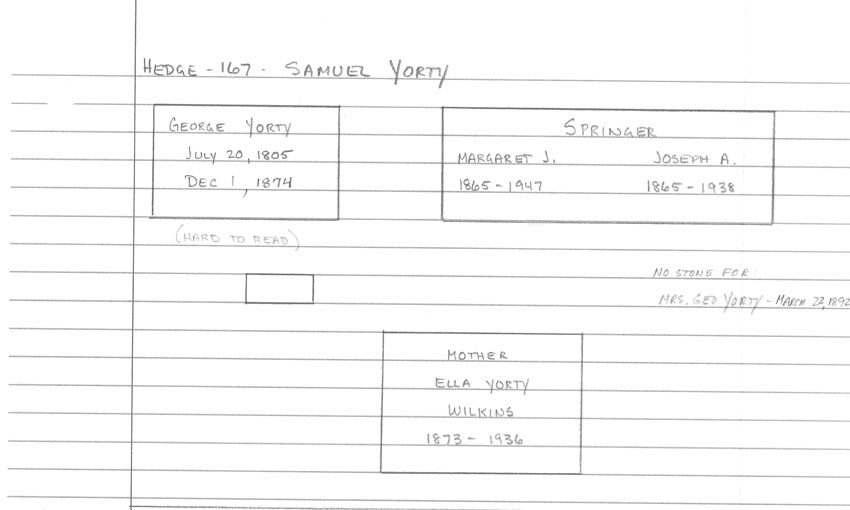 HEDGE - 167 - SAMUEL YORTY
GEORGE YORTY
JULY 20, 1805
DEC 1, 1874
(HARD TO READ)
SPRINGER
MARGARET J. JOSEPH A.
1865 - 1947 1865 - 1938
NO STONE FOR:
MRS. GEO YORTY - MARCH 22, 1892
MOTHER
ELLA YORTY
WILKINS
1873 - 1936